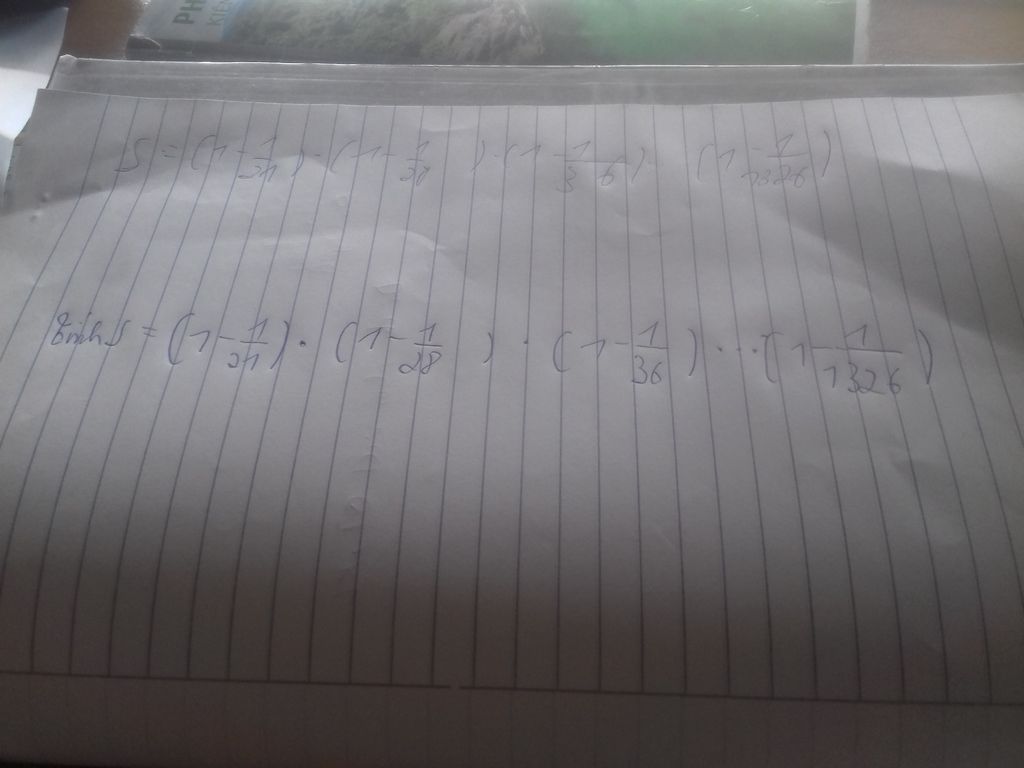 PH
KIẾ
S = (1 - 1/21) · (1 - 1/28) · (1 - 1/36) (1 - 1/1326)
Tính S = (1 - 1/21) · (1 - 1/28) · (1 - 1/36) · ... (1 - 1/1326)